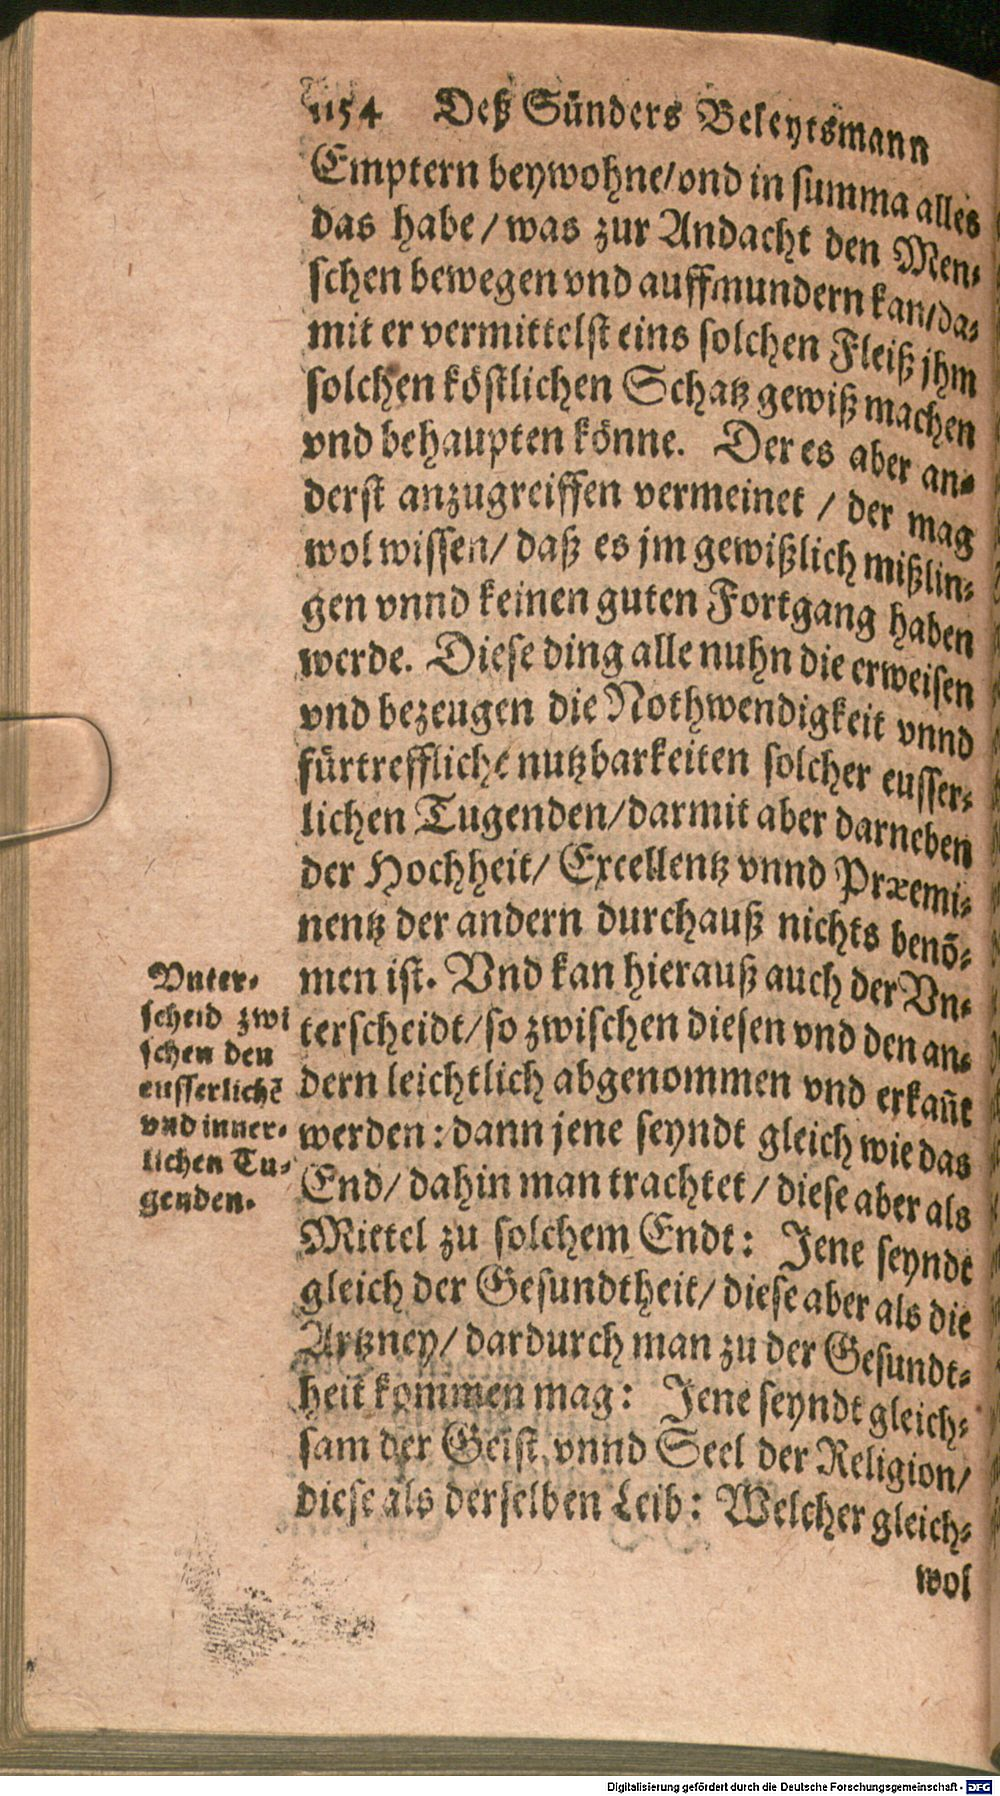 1154 Deß Sünders Beleytsmann
Emptern beywohne/vnd in summa alles
das habe / was zur Andacht den Men-
schen bewegen vnd auffmundern kan/da-
mit er vermittelst eins solchen Fleiß jhm
solchen köstlichen Schatz gewiß machen
vnd behaupten könne. Der es aber an-
derst anzugreiffen vermeinet / der mag
wol wissen/ daß es jm gewißlich mißlin-
gen vnnd keinen guten Fortgang haben
werde. Diese ding alle nuhn die erweisen
vnd bezeugen die Nothwendigkeit vnnd
fürtreffliche nutzbarkeiten solcher eusser-
lichen Tugenden/darmit aber darneben
der Hochheit/ Excellentz vnnd Præemi-
nentz der andern durchauß nichts benõ-
men ist. Vnd kan hierauß auch der Vn-
terscheidt/so zwischen diesen vnd den an-
dern leichtlich abgenommen vnd erkañt
werden: dann jene seyndt gleich wie das
End/ dahin man trachtet / diese aber als
Mittel zu solchem Endt: Jene seyndt
gleich der Gesundtheit/ diese aber als die
Artzney/ dardurch man zu der Gesundt-
heit kommen mag: Jene seyndt gleich-
sam der Geist vnnd Seel der Religion/
diese als derselben Leib: Welcher gleich-
wol
Vnter-
scheid zwi
schen den
eusserlichẽ
vnd inner-
lichen Tu-
genden.
Digitalisierung gefördert durch die Deutsche Forschungsgemeinschaft - DFG